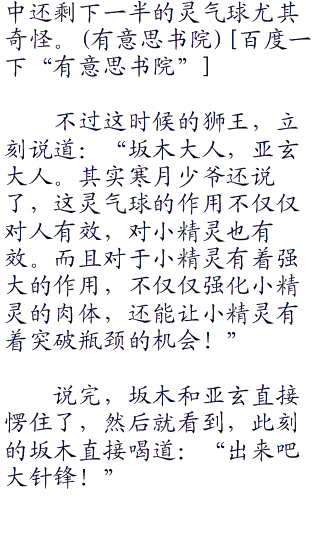 中还剩下一半的灵气球尤其
奇怪。(有意思书院)[百度一
下“有意思书院”]
不过这时候的狮王，立
刻说道：“坂木大人，亚玄
大人。其实寒月少爷还说
了，这灵气球的作用不仅仅
对人有效，对小精灵也有
效。而且对于小精灵有着强
大的作用，不仅仅强化小精
灵的肉体，还能让小精灵有
着突破瓶颈的机会！”
说完，坂木和亚玄直接
愣住了，然后就看到，此刻
的坂木直接喝道：“出来吧
大针锋！”